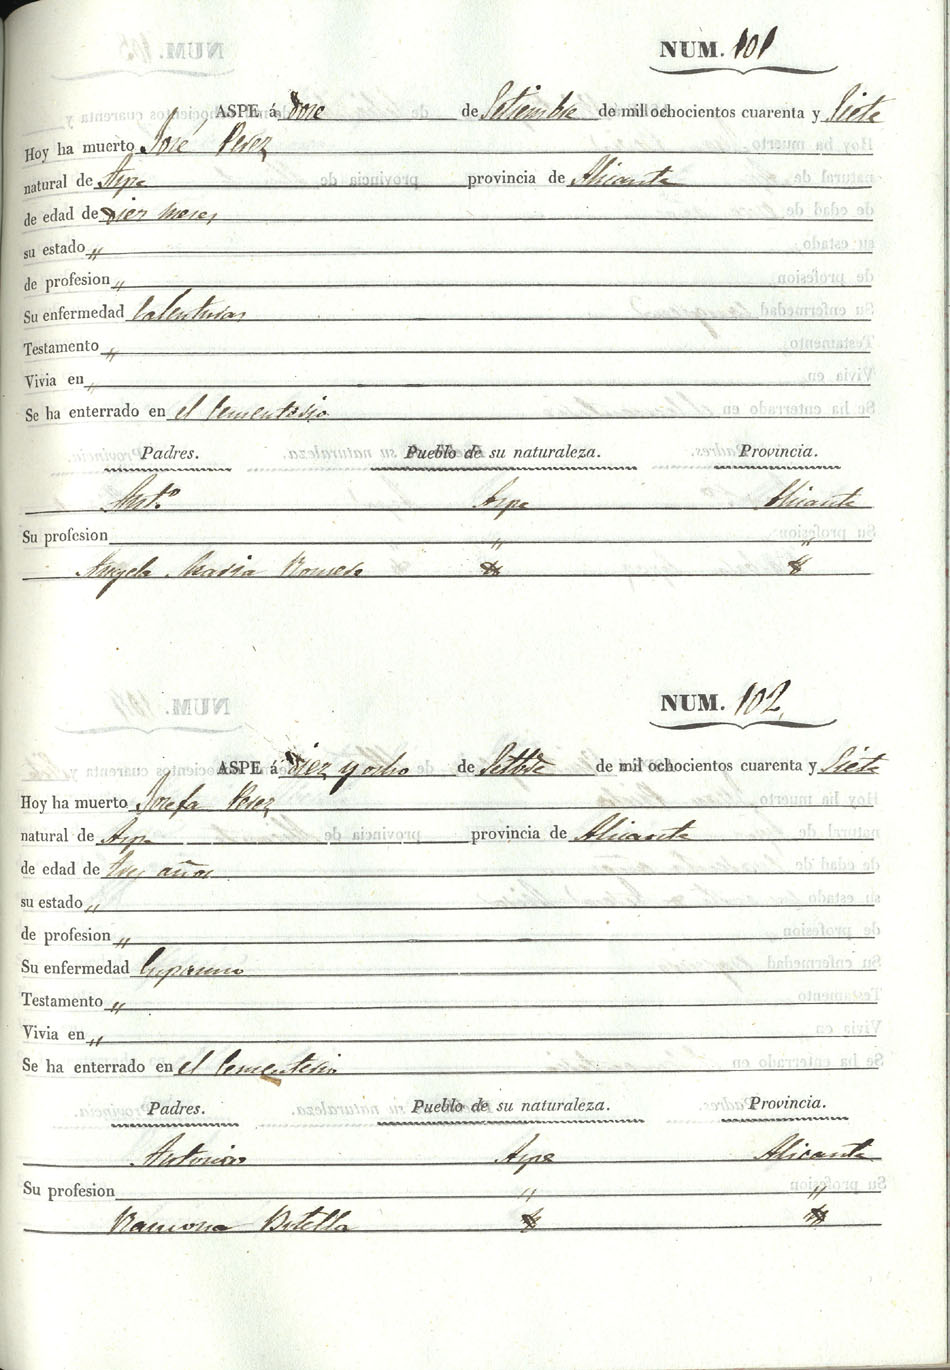 NUM. 101
ASPE á Doce de Setiembre de mil ochocientos cuarenta y Siete
Hoy ha muerto José Perez
natural de Aspe provincia de Alicante
de edad de Diez meses
su estado „
de profesion „
Su enfermedad Calenturas
Testamento „
Vivia en „
Se ha enterrado en el Cementerio
Padres. Pueblo de su naturaleza. Provincia.
Antº Aspe Alicante
Su profesion „ „
Angela Maria Romero
NUM. 102
ASPE á Diez y ocho de Setbre de mil ochocientos cuarenta y Siete
Hoy ha muerto Josefa Perez
natural de Aspe provincia de Alicante
de edad de tres años
su estado „
de profesion „
Su enfermedad
Testamento „
Vivia en „
Se ha enterrado en el Cementerio
Padres. Pueblo de su naturaleza. Provincia.
Antonio Aspe Alicante
Su profesion „ „
Ramona Botella